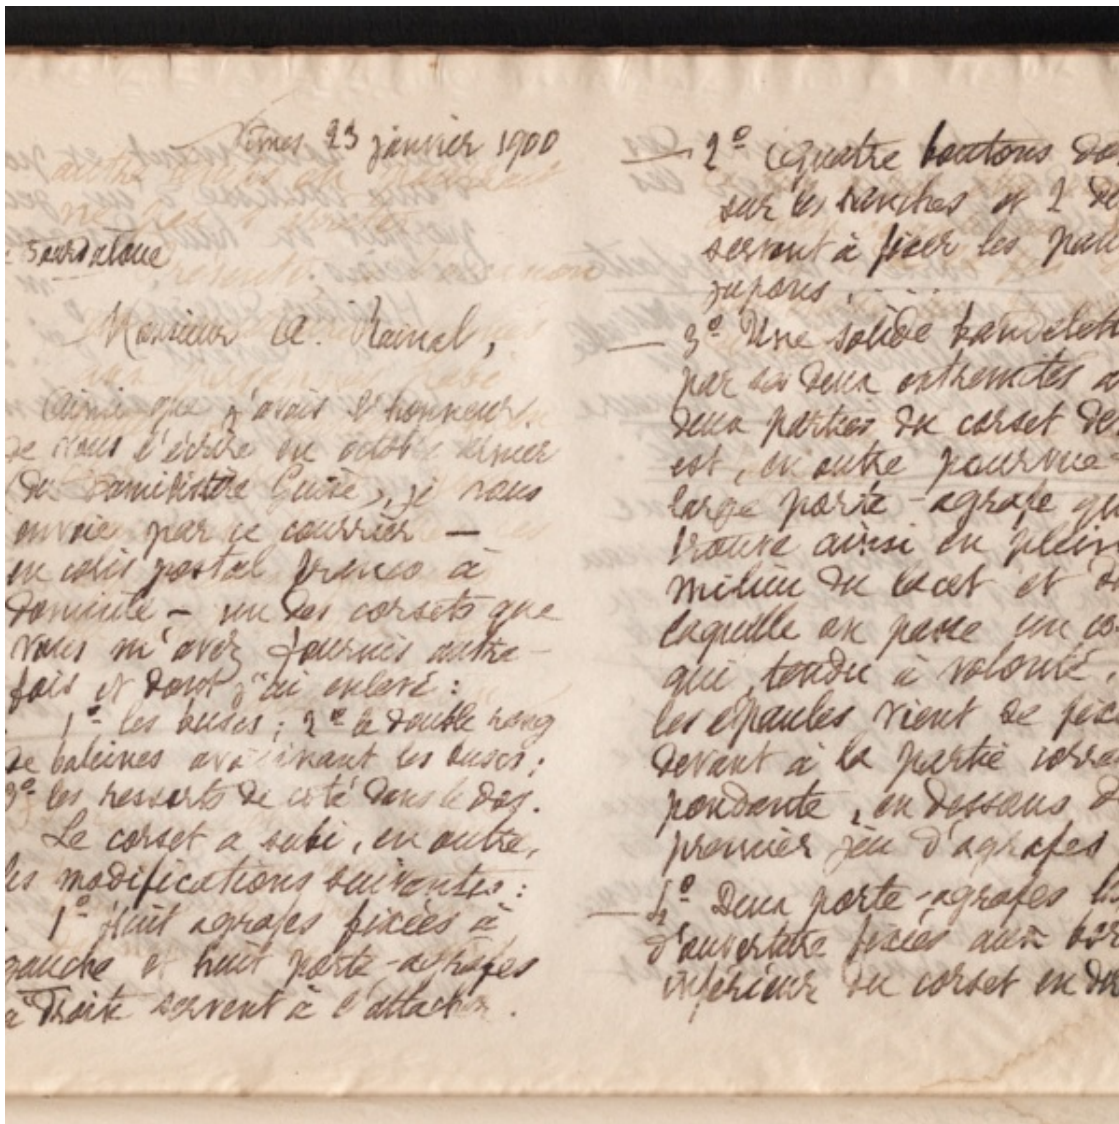 23 janvier 1900
Monsieur A. Rainal,
Ainsi que j'avais l'honneur
de vous l'écrire en octobre dernier
(du Familistère Guise), je vous
envoie par ce courrier —
en colis postal franco à
domicile — un des corsets que
vous m'avez fournis autre-
fois et dont j'ai enlevé :
1º les buscs ; 2º le double rang
de baleines avoisinant les buscs ;
3º les ressorts de coté dans le dos.
Le corset a subi, en outre,
les modifications suivantes :
1º huit agrafes fixées à
gauche et huit porte-agrafes
à droite servent à l'attacher.
— 2º Quatre boutons
sur les hanches et 2
servant à fixer les
jupons.
— 3º Une solide
par ses deux extremites
deux parties du corset
est, en outre pourvue
large porte-agrafe
trouve ainsi en plein
milieu du lacet et
laquelle on passe un
qui, tendu à volonté,
les épaules vient se
devant à la partie corres
pondante, en dessous
premier jeu d'agrafes
— 4º Deux porte-agrafes
d'ouverture fixés aux
inférieur du corset en